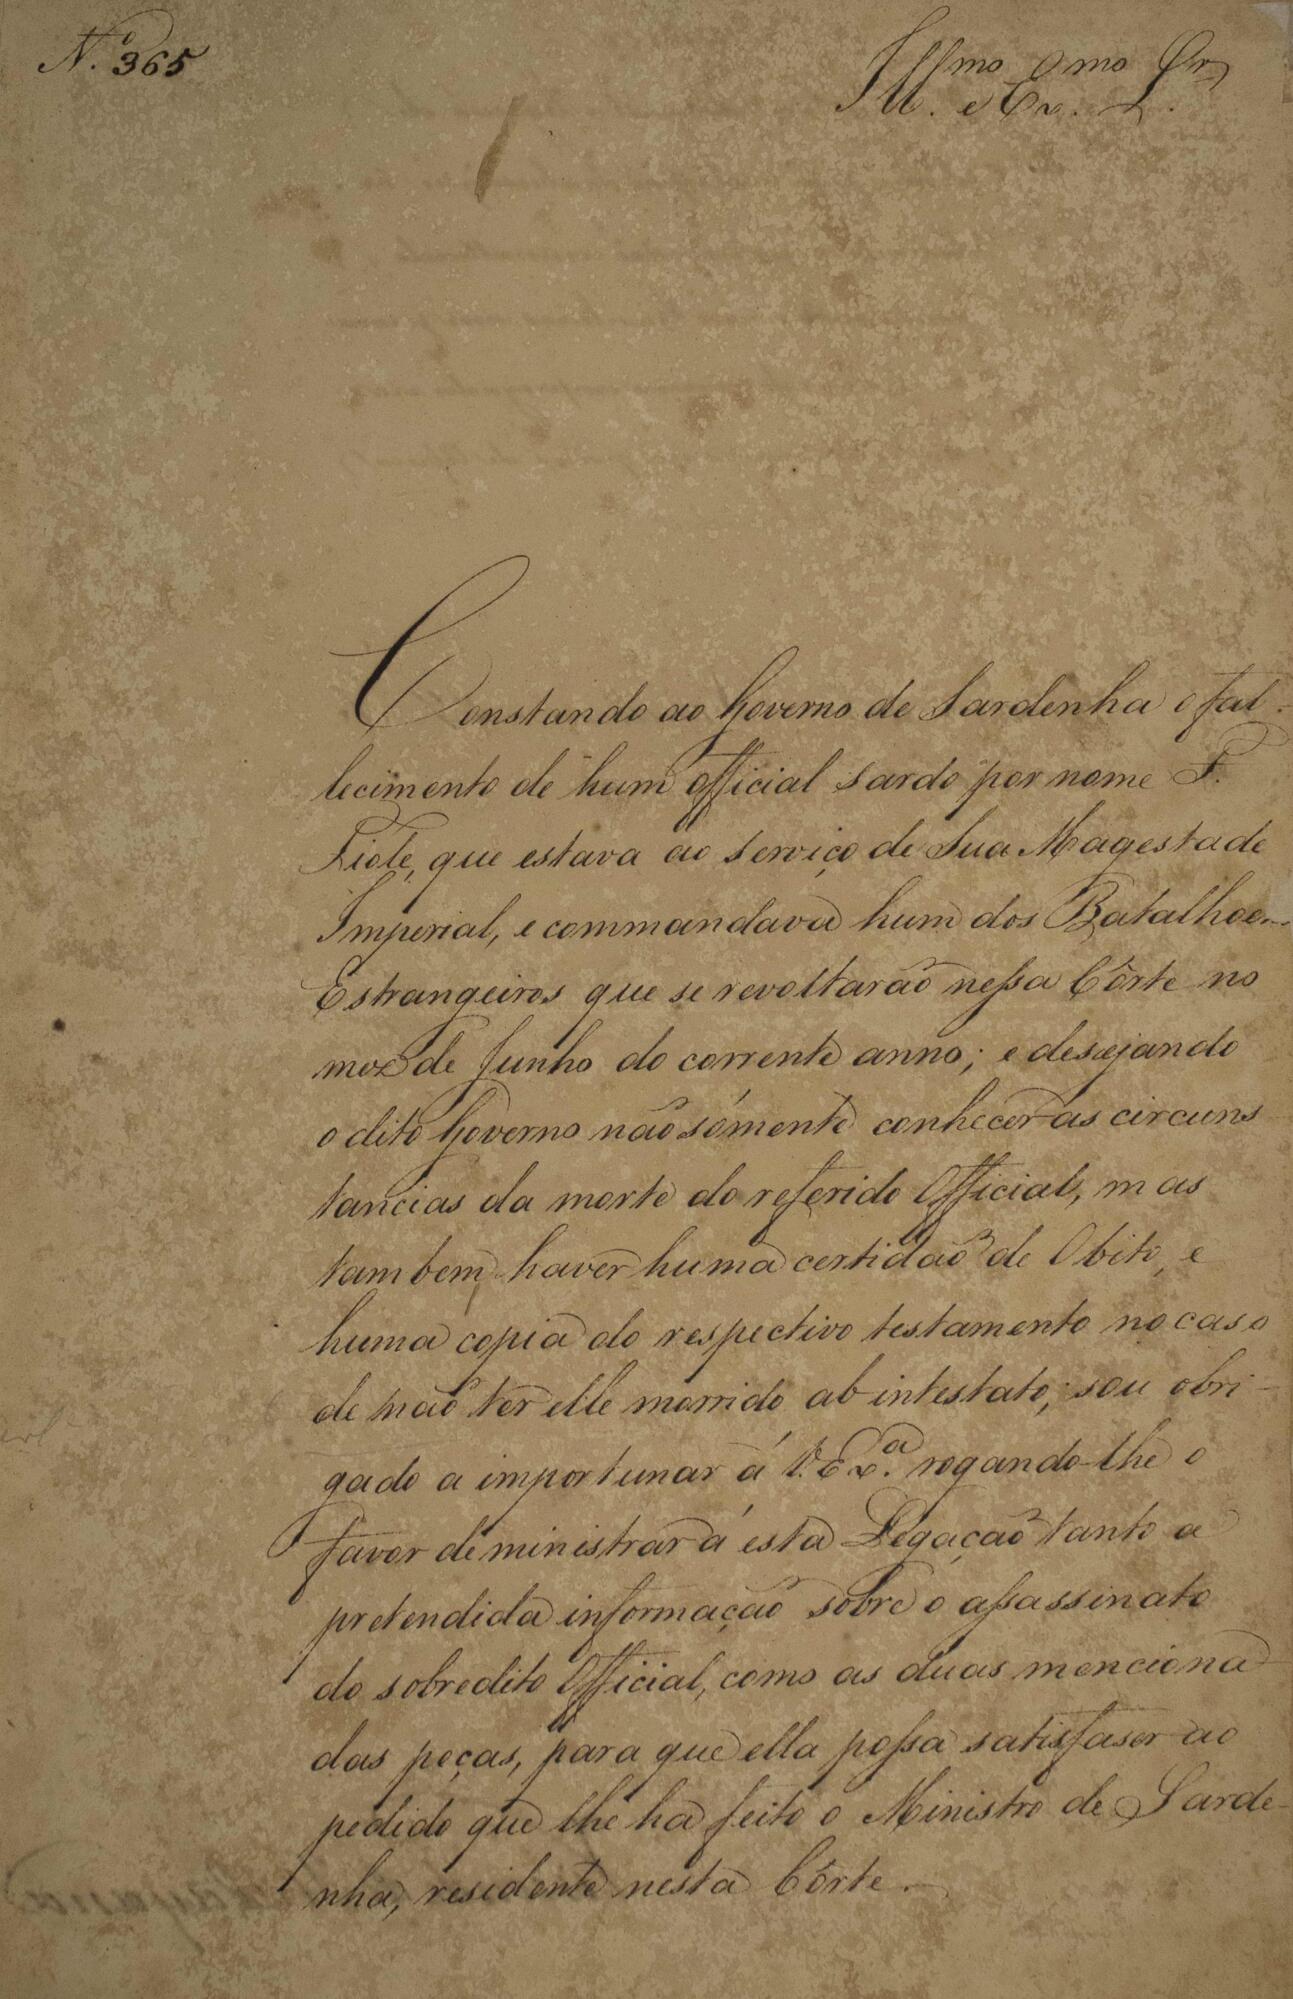 N.º 365
Ill.mo e Ex.mo Sr.
Constando ao Governo de Sardenha o fal-
lecimento de hum official sardo por nome F.
Fiole, que estava ao serviço de Sua Magestade
Imperial, e commandava hum dos Batalhoens
Estrangeiros que se revoltarão nessa Côrte no
mez de Junho do corrente anno; e desejando
o dito Governo não sómente conhecer as circuns
tancias da morte do referido Official, mas
tambem haver huma certidão de Obito, e
huma copia do respectivo testamento no caso
de não ter elle morrido ab intestato; sou obri-
gado a importunar á V. Ex.ª rogando-lhe o
favor de ministrar á esta Legação tanto a
pretendida informação sobre o assassinato
do sobredito Official, como as duas menciona
das peças, para que ella possa satisfaser ao
pedido que lhe ha feito o Ministro de Sarde-
nha, residente nesta Côrte.